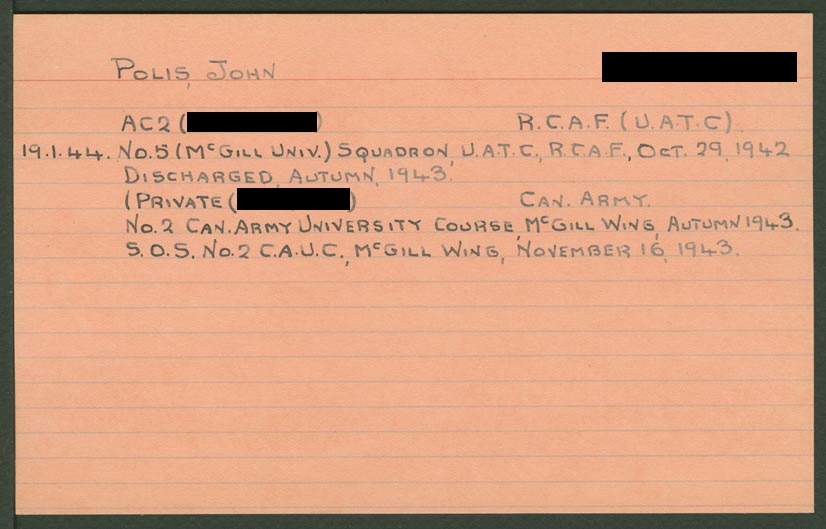 POLIS, JOHN
AC2 ( ) R.C.A.F. (U.A.T.C)
19.1.44. No.5 (McGILL UNIV.) SQUADRON, U.A.T.C., R.C.A.F., OCT. 29, 1942
DISCHARGED, AUTUMN, 1943.
(PRIVATE ( ) CAN. ARMY.
No.2 CAN. ARMY UNIVERSITY COURSE, McGILL WING, AUTUMN 1943.
S.O.S. No.2 C.A.U.C., McGILL WING, NOVEMBER 16, 1943.